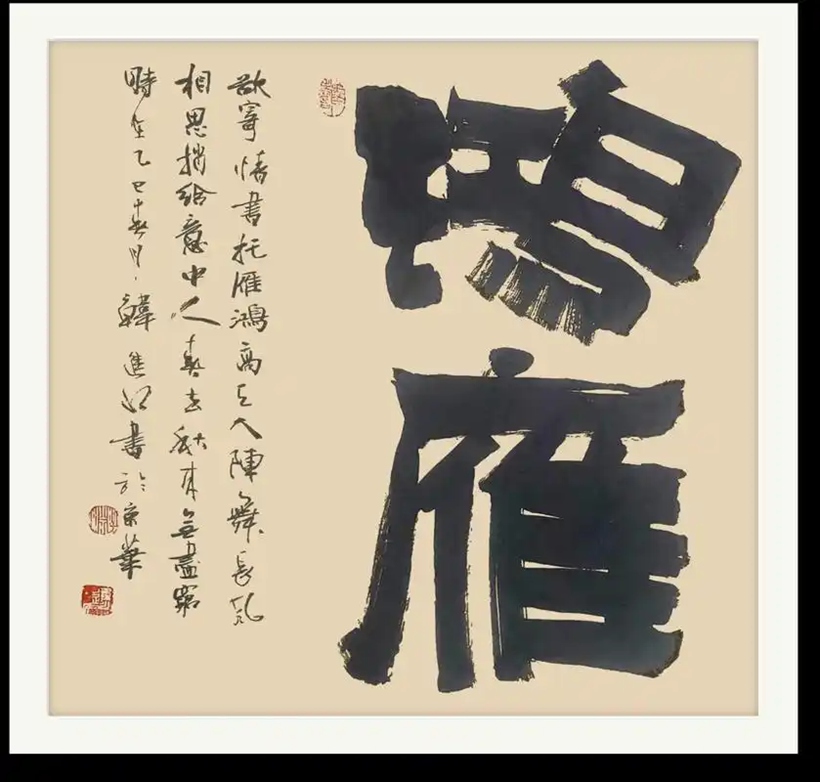 鴻雁
欲寄情書托雁鴻高人陣舞長
相思捎給意中人春去秋來無盡窮
時在乙巳春月韓進書於京華